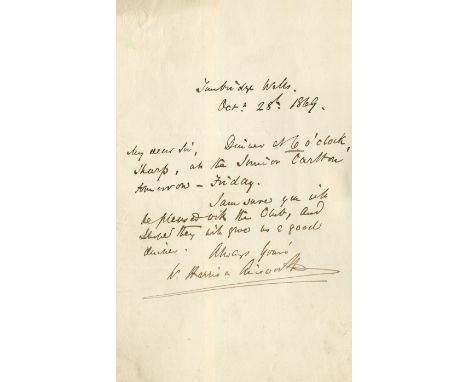 Tunbridge Wells.
Octr. 28th. 1869.
My dear Sir, Dinner at 6 o'clock,
sharp, at the Junior Carlton
tomorrow – Friday.
I am sure you will
be pleased with the Club, and
they will give us a good
dinner. Always Yours
W. Harrison Ainsworth